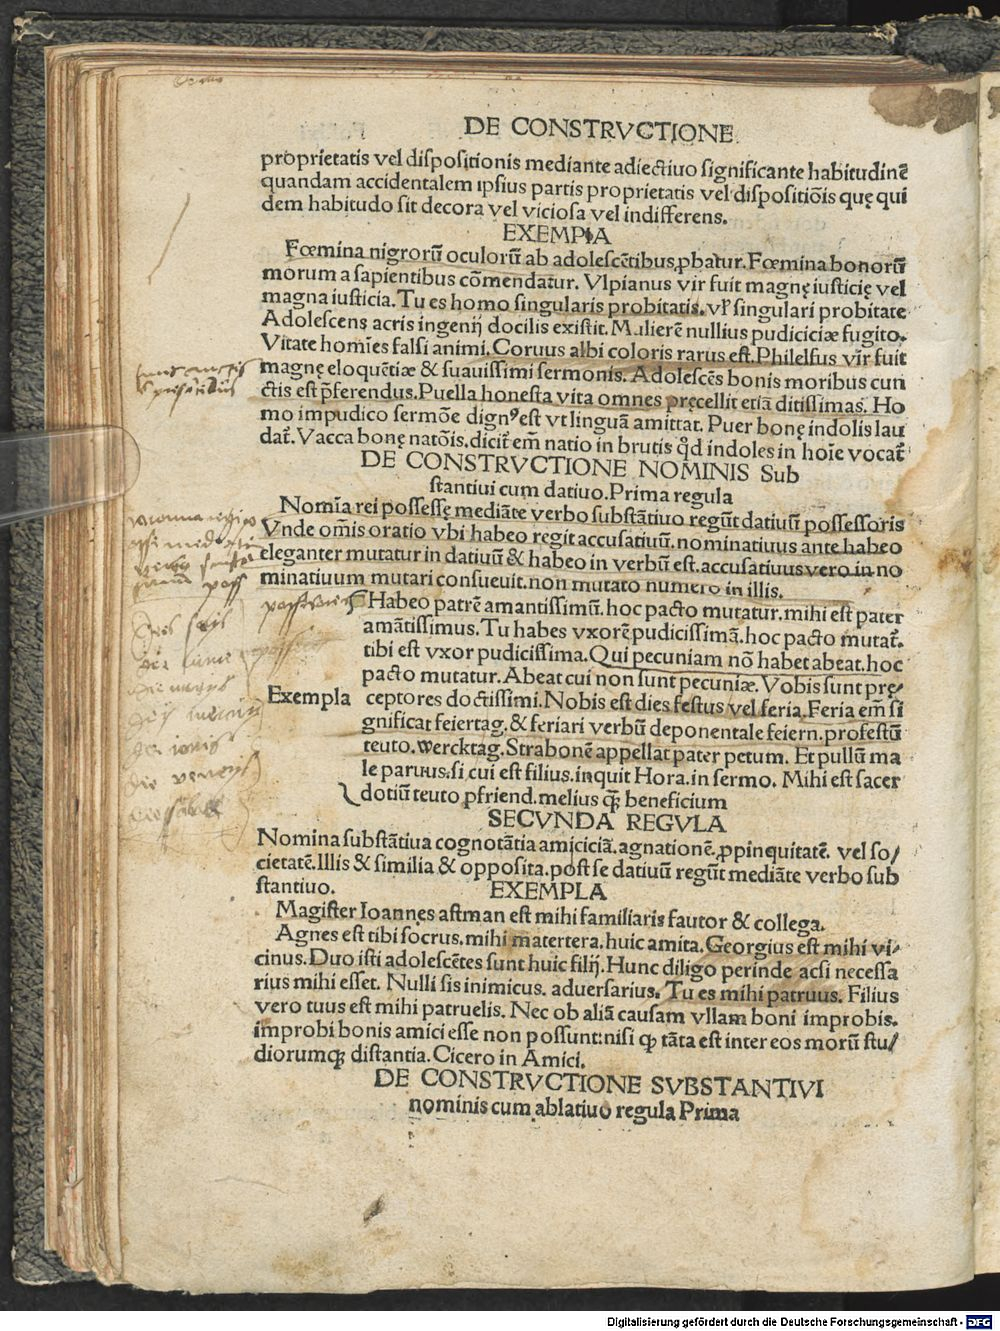 DE CONSTRVCTIONE
proprietatis vel dispositionis mediante adiectiuo significante habitudinē
quandam accidentalem ipsius partis proprietatis vel dispositiōis quę qui
dem habitudo sit decora vel viciosa vel indifferens.
EXEMPLA
Fœmina nigrorū oculorū ab adolescētibus ꝓbatur. Fœmina bonorū
morum a sapientibus cōmendatur. Vlpianus vir fuit magnę iusticię vel
magna iusticia. Tu es homo singularis probitatis. vł singulari probitate
Adolescens acris ingenij docilis existit. Mulierē nullius pudiciciæ fugito.
Vitate homīes falsi animi. Coruus albi coloris rarus est. Philelfus vir fuit
magnę eloquētiæ & suauissimi sermonis. Adolescēs bonis moribus cun
ctis est p̄ferendus. Puella honesta vita omnes pręcellit etiā ditissimas. Ho
mo impudico sermōe dignꝰ est vt linguā amittat. Puer bonę indolis lau
dat̄. Vacca bonę natōis. dicit̄ em̄ natio in brutis qđ indoles in hoīe vocat̄
DE CONSTRVCTIONE NOMINIS Sub
stantiui cum datiuo. Prima regula
Nomīa rei possessę mediāte verbo substātiuo regūt datiuū possessoris
Vnde om̄is oratio vbi habeo regit accusatiuū. nominatiuus ante habeo
eleganter mutatur in datiuū & habeo in verbū est. accusatiuus vero in no
minatiuum mutari consueuit. non mutato numero in illis.
Habeo patrē amantissimū. hoc pacto mutatur. mihi est pater
amātissimus. Tu habes vxorē pudicissimā. hoc pacto mutat̄.
tibi est vxor pudicissima. Qui pecuniam nō habet abeat. hoc
pacto mutatur. Abeat cui non sunt pecuniæ. Vobis sunt pręʹ
Exempla ceptores doctissimi. Nobis est dies festus vel feria. Feria em̄ si
gnificat feiertag. & feriari verbū deponentale feiern. profestū
teuto. werchtag. Strabonē appellat pater petum. Et pullū ma
le paruus. si cui est filius. inquit Hora. in sermo. Mihi est sacer
dotiū teuto pfriend. melius qꝫ beneficium
SECVNDA REGVLA
Nomina substātiua cognotātia amiciciā. agnationē. ꝓpinquitatē. vel so/
cietatē. Illis & similia & opposita. post se datiuū regūt mediāte verbo sub
stantiuo. EXEMPLA
Magister Ioannes astman est mihi familiaris fautor & collega.
Agnes est tibi socrus. mihi matertera. huic amita. Georgius est mihi vi/
cinus. Duo isti adolescētes sunt huic filij. Hunc diligo perinde acsi necessa
rius mihi esset. Nulli sis inimicus. aduersarius. Tu es mihi patruus. Filius
vero tuus est mihi patruelis. Nec ob aliā causam vllam boni improbis.
improbi bonis amici esse non possunt: nisi ꝙ tāta est inter eos morū stu/
diorumqꝫ distantia. Cicero in Amici.
DE CONSTRVCTIONE SVBSTANTIVI
nominis cum ablatiuo regula Prima
Digitalisierung gefördert durch die Deutsche Forschungsgemeinschaft - DFG